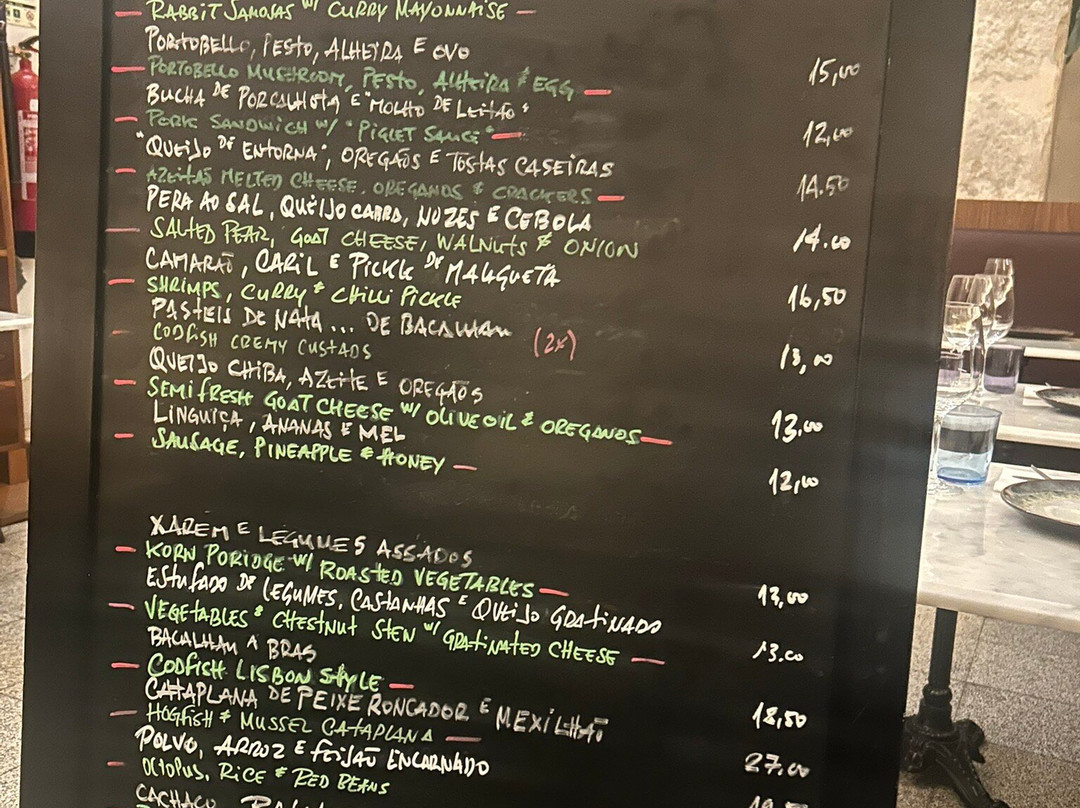 RABBIT SAMOSAS W/ CURRY MAYONNAISE
PORTOBELLO, PESTO, ALHEIRA E OVO 15,00
PORTOBELLO MUSHROOM, PESTO, ALHEIRA & EGG
BUCHA DE PORCALHOTA E "MOLHO DE LEITÃO" 12,00
PORK SANDWICH W/ "PIGLET SAUCE"
"QUEIJO DE ENTORNA", OREGÃOS E TOSTAS CASEIRAS 14.50
AZEITÃO MELTED CHEESE, OREGANOS & CRACKERS
PERA AO SAL, QUEIJO CABRA, NOZES E CEBOLA 14.00
SALTED PEAR, GOAT CHEESE, WALNUTS & ONION
CAMARÃO, CARIL E PICKLE DE MALAGUETA 16,50
SHRIMPS, CURRY & CHILLI PICKLE
PASTEIS DE NATA... DE BACALHAU (2x) 13,00
CODFISH CREMY CUSTADS
QUEIJO CHIBA, AZEITE E OREGÃOS 13.00
SEMIFRESH GOAT CHEESE W/ OLIVE OIL & OREGANOS
LINGUIÇA, ANANAS E MEL 12,00
SAUSAGE, PINEAPPLE & HONEY
XAREM E LEGUMES ASSADOS 13,00
KORN PORIDGE W/ ROASTED VEGETABLES
ESTUFADO DE LEGUMES, CASTANHAS E QUEIJO GRATINADO 13.00
VEGETABLES & CHESTNUT STEW W/ GRATINATED CHEESE
BACALHAU A BRAS 18,50
CODFISH LISBON STYLE
CATAPLANA DE PEIXE RONCADOR E MEXILHÃO 27.00
HOGFISH & MUSSEL CATAPLANA
POLVO, ARROZ E FEIJÃO ENCARNADO
OCTOPUS, RICE & RED BEANS
CACHAÇO